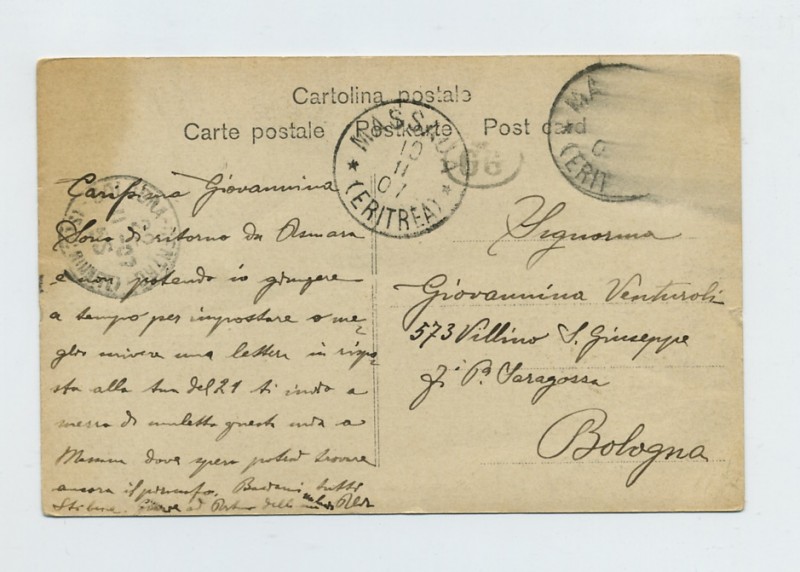 Cartolina postale
Carte postale Postkarte Post card
MASSAUA
10
11
07
(ERITREA)
MA
(ERIT
Carissima Giovannina
Sono di ritorno da Asmara
e non potendo io giungere
a tempo per impostare o me-
glio scrivere una lettera in rispo
sta alla tua del 21 ti invio a
mezzo di muletto questa mia a
Massaua dove spero potrà trovare
ancora il piroscafo. Baciami tutti
Signorina
Giovannina Venturoli
573 Villino S. Giuseppe
Pª. Saragossa
Bologna